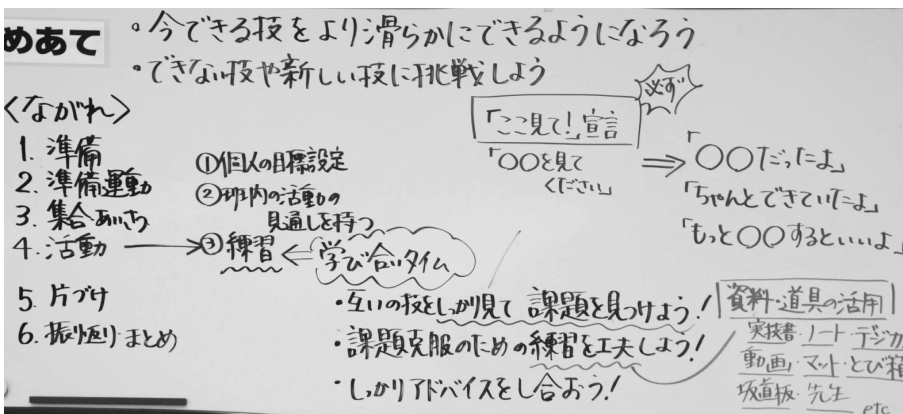 めあて
・今できる技をより滑らかにできるようになろう
・できない技や新しい技に挑戦しよう
〈ながれ〉
1. 準備
2. 準備運動
3. 集合あいさつ
4. 活動
5. 片づけ
6. 振り返り・まとめ
①個人の目標設定
②班内の活動の
見通しを持つ
③練習
学び合いタイム
「ここ見て!」宣言
必ず
「〇〇を見て
ください」
「〇〇だったよ」
「ちゃんとできていたよ」
「もっと〇〇するといいよ」
・互いの技をしっかり見て 課題を見つけよう!
・課題克服のための練習を工夫しよう!
・しっかりアドバイスをし合おう!
資料・道具の活用
実技書・ノート・デジカ
動画・マット・とび箱
坂道板・先生
etc